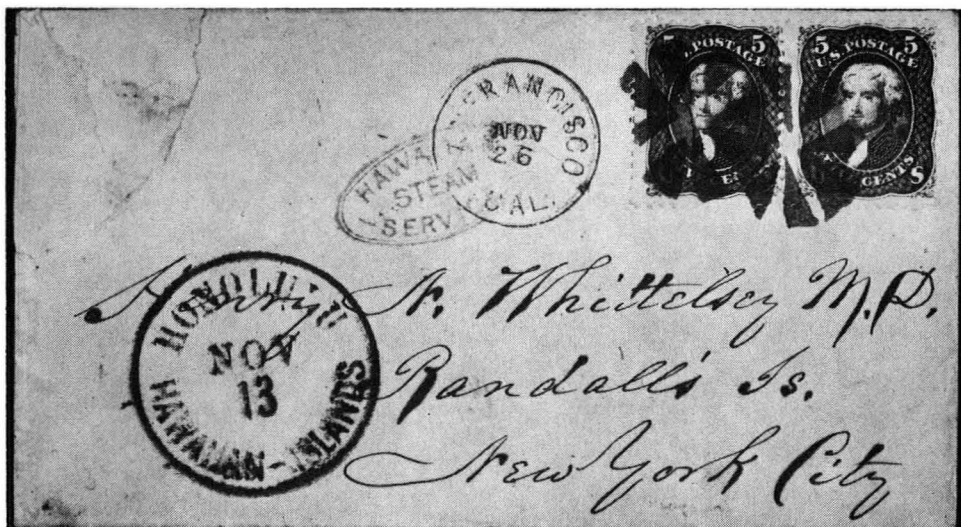 U.S. POSTAGE
5 5
U.S. POSTAGE
CENTS
SAN FRANCISCO
NOV
26
CAL.
HAWAI
STEAM
SERV
HONOLULU
NOV
13
HAWAIIAN-ISLANDS
N. Whittelsey M.D.
Randall's Is.
New York City